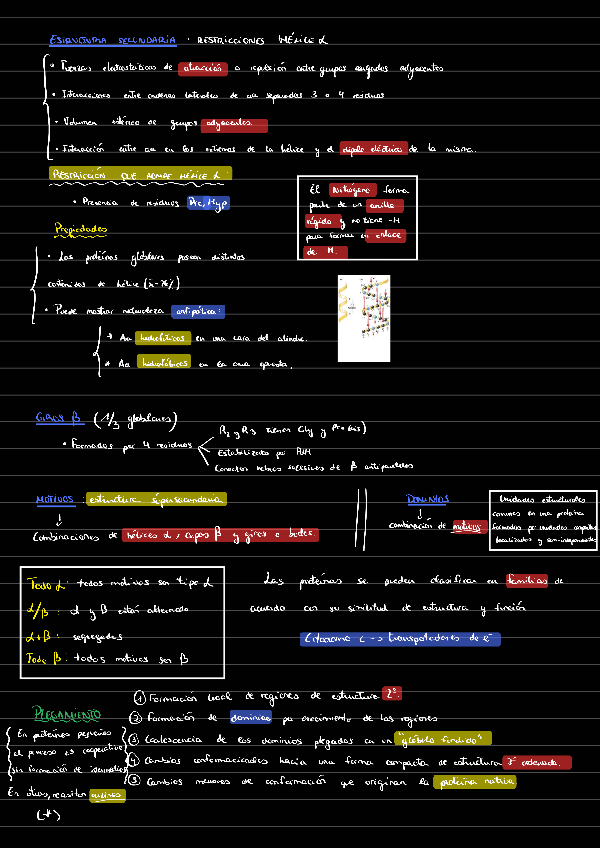 ESTRUCTURA SECUNDARIA · RESTRICCIONES HÉLICE α
• Fuerzas electrostáticas de atracción o repulsión entre grupos cargados adyacentes
• Interacciones entre cadenas laterales de aa separados 3 o 4 residuos
• Volumen estérico de grupos adyacentes
• Interacción entre aa en los extremos de la hélice y el dipolo eléctrico de la misma.
RESTRICCIÓN QUE ROMPE HÉLICE α:
• Presencia de residuos Pro, Hyp
El Nitrógeno forma
parte de un anillo
rígido y no tiene -H
para formar un enlace
de H.
Propiedades
• Las proteínas globulares poseen distintos
contenidos de hélice
• Puede mostrar naturaleza antipática:
→ Aa hidrofílicos en una cara del cilindro.
• Aa hidrofóbicos en la cara opuesta.
GIROS β (1/3 globulares)
• Formados por 4 residuos
R2 y R3 suelen Gly y Pro
Estabilizado por
Conectan hebras sucesivas de β antiparalelas
MOTIVOS : estructura supersecundaria
↓
Combinaciones de hélices α, capas β y giros o bucles.
DOMINIOS
↓
combinación de motivos
Unidades estructurales
comunes en una proteína
formados por unidades
localizados y semi-independientes
Todo α: todos motivos son tipo α
α/β : α y β están alternado
α+β : segregadas
Todo β: todos motivos son β
Las proteínas se pueden clasificar en familias de
acuerdo con su similitud de estructura y función
Citocromo c → transportadores de e⁻
PLEGAMIENTO
En proteínas pequeñas
el proceso es cooperativo
sin formación de intermedios
En otros, necesitan
(*)
① Formación local de regiones de estructura 2ª.
② Formación de dominios por crecimiento de las regiones
③ Coalescencia de los dominios plegados en un "glóbulo fundido"
④ Cambios conformacionales hacia una forma compacta de estructura 3ª ordenada.
⑤ Cambios menores de conformación que originan la proteína nativa